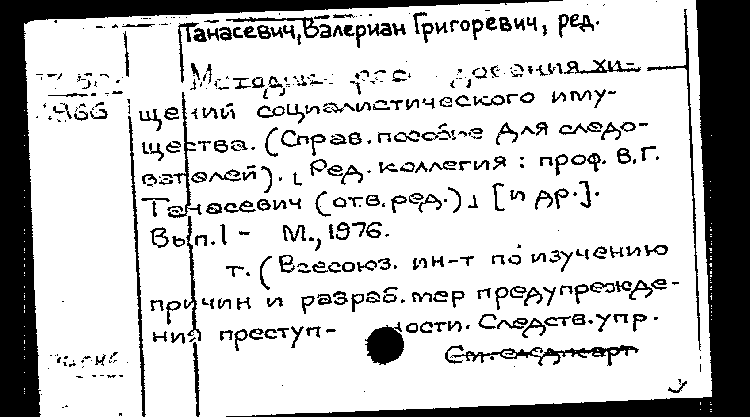 Танасевич, Валериан Григоревич, ред.
Методика расследования хи-
1966 щений социалистического иму-
щества. (Справ. пособие для следо-
вателей). [Ред. коллегия: проф. В.Г.
Танасевич (отв. ред.)] [и др.].
Вып. 1 - М., 1976.
т. (Всесоюз. ин-т по изучению
причин и разраб. мер предупрежде-
ния преступ- ности. Следств. упр.
См. след. карт